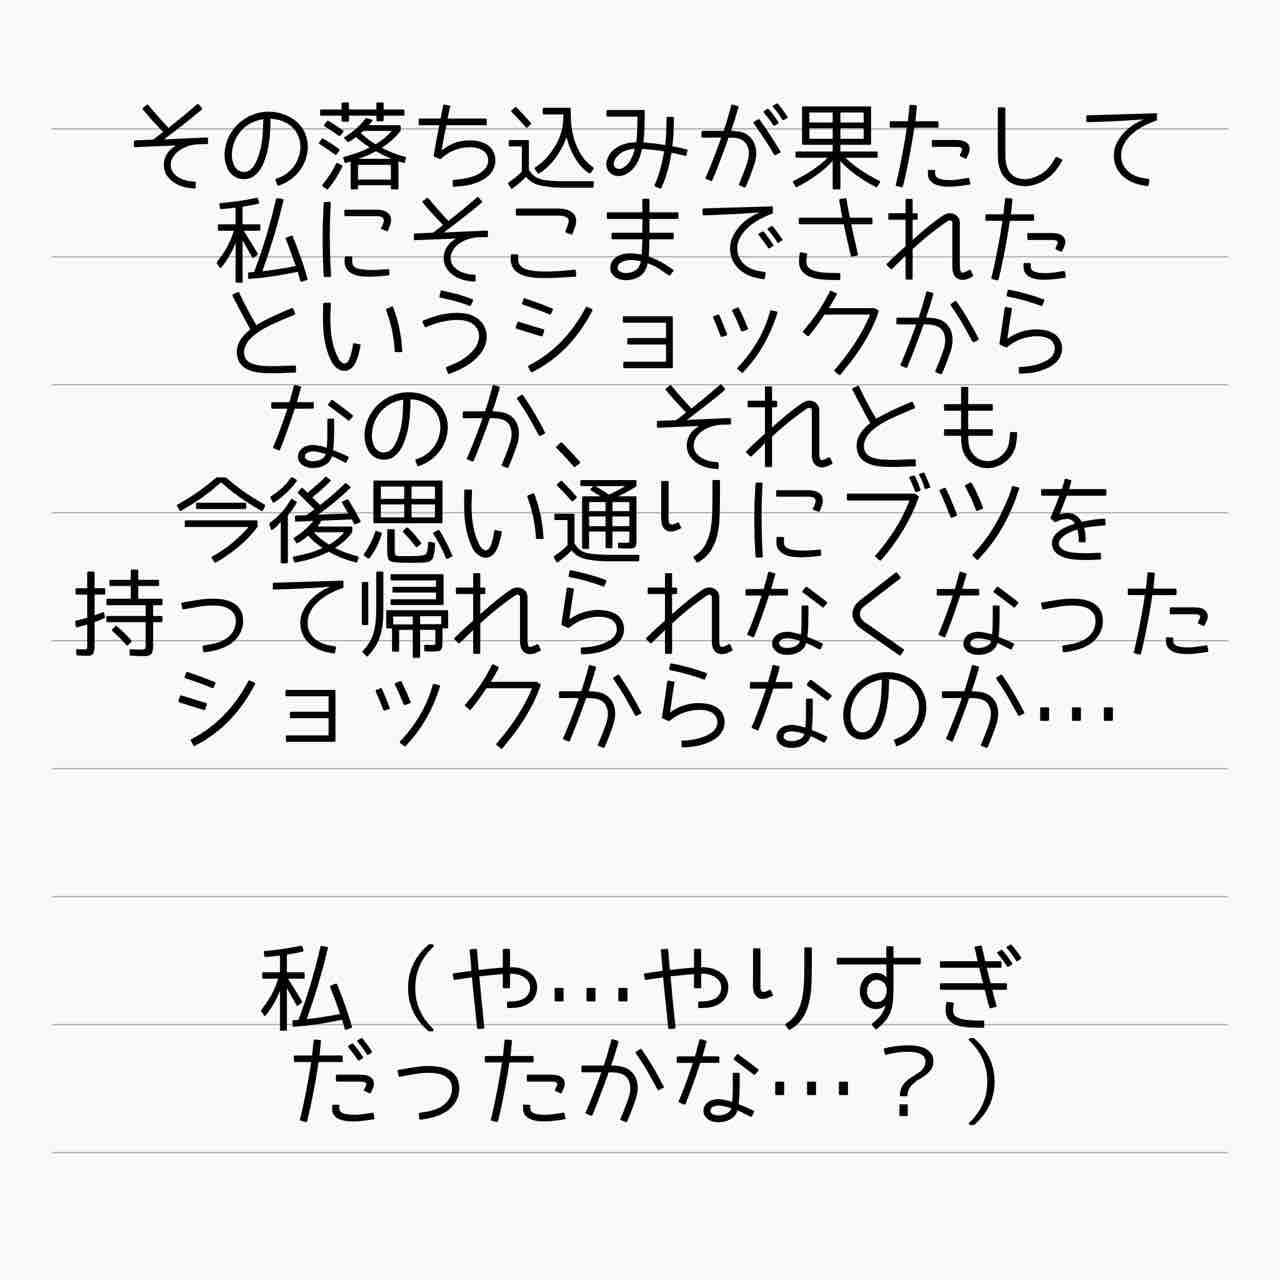 その落ち込みが果たして
私にそこまでされた
というショックから
なのか、それとも
今後思い通りにブツを
持って帰れられなくなった
ショックからなのか…
私（や…やりすぎ
だったかな…？）